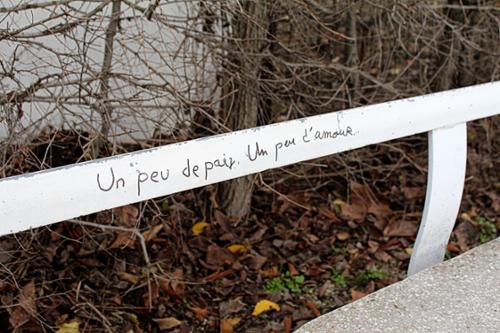 Un peu de paix. Un peu d'amour.